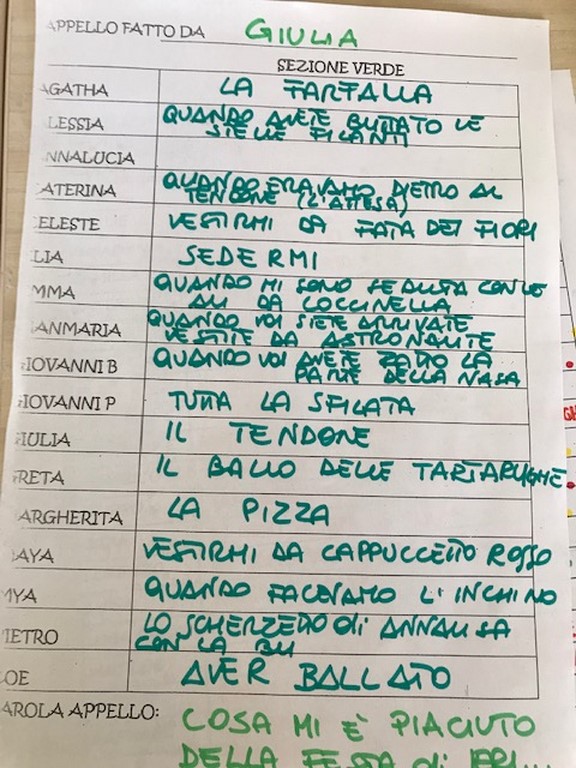 APPELLO FATTO DA GIULIA
SEZIONE VERDE
AGATHA LA FARFALLA
LESSIA QUANDO AVETE BUTTATO LE
STELLE FILANTI
NNALUCIA
ATERINA QUANDO ERAVAMO DIETRO AL
TENDONE (L'ATTESA)
ELESTE VESTIRMI DA FATA DEI FIORI
LIA SEDERMI
MMA QUANDO MI SONO SEDUTA CON LE
ALI DA COCCINELLA
IANMARIA QUANDO VOI SIETE ARRIVATE
VESTITE DA ASTRONAUTE
GIOVANNI B QUANDO VOI AVETE FATTO LA
PARTE DELLA NASA
GIOVANNI P TUTTA LA SFILATA
GIULIA IL TENDONE
GRETA IL BALLO DELLE TARTARUGHE
ARGHERITA LA PIZZA
AYA VESTIRMI DA CAPPUCCETTO ROSSO
MYA QUANDO FACEVAMO L'INCHINO
PIETRO LO SCHERZETTO di ANNALISA
CON LA
OE AVER BALLATO
AROLA APPELLO: COSA MI È PIACIUTO
DELLA FESTA di IERI...